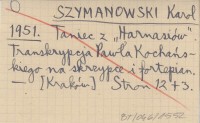 SZYMANOWSKI Karol
1951. Taniec z „Harnasiów".
Transkrypcja Pawła Kochań-
skiego na skrzypce i fortepian.
— [Kraków] Stron 12 + 3.